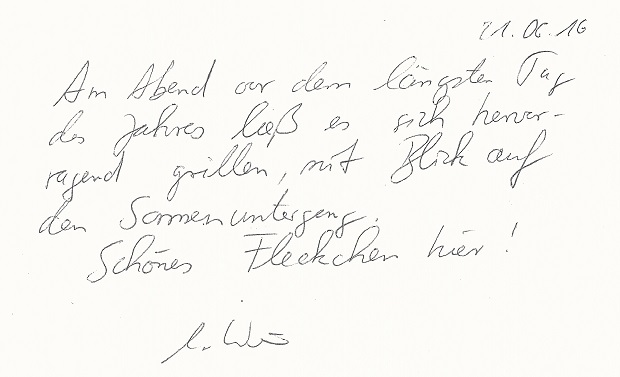 21.06.16
Am Abend vor dem längsten Tag
des Jahres ließ es sich hervor-
ragend grillen, mit Blick auf
den Sonnenuntergang.
Schönes Fleckchen hier!